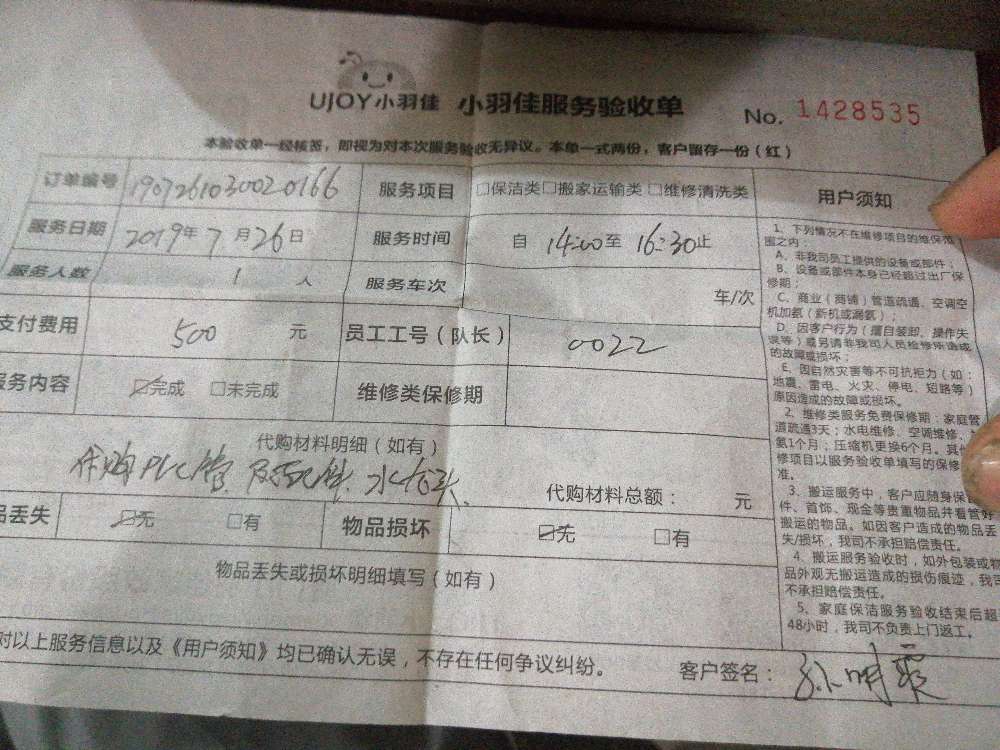 UJOY小羽佳 小羽佳服务验收单 No. 1428535
本验收单一经核签，即视为对本次服务验收无异议。本单一式两份，客户留存一份（红）
订单编号 1907261030020166 服务项目 □保洁类□搬家运输类□维修清洗类
服务日期 2019年7月26日 服务时间 自 14:00至 16:30止
服务人数 1 人 服务车次 车/次
支付费用 500 元 员工工号（队长） 0022
服务内容 ☑完成 □未完成 维修类保修期
代购材料明细（如有）
代购PVC管及配件、水龙头、
代购材料总额： 元
品丢失 ☑无 □有 物品损坏 ☑无 □有
物品丢失或损坏明细填写（如有）
对以上服务信息以及《用户须知》均已确认无误，不存在任何争议纠纷。
客户签名：
用户须知
1、下列情况不在维修项目的维保范
围之内：
A、非我司员工提供的设备或部件；
B、设备或部件本身已经超过出厂保
修期；
C、商业（商铺）管道疏通、空调空
机加氨（新机或漏氨）；
D、因客户行为（擅自装卸、操作失
误等）或另请非我司人员检修所造成
的故障或损坏；
E、因自然灾害等不可抗拒力（如：
地震、雷电、火灾、停电、短路等）
原因造成的故障或损坏。
2、维修类服务免费保修期：家庭管
道疏通3天；水电维修、空调维修、
氨1个月；压缩机更换6个月。其他
修项目以服务验收单填写的保修
准。
3、搬运服务中，客户应随身保管
件、首饰、现金等贵重物品并看管好
搬运的物品。如因客户造成的物品丢
失/损坏，我司不承担赔偿责任。
4、搬运服务验收时，如外包装或物
品外观无搬运造成的损伤痕迹，我司
不承担赔偿责任。
5、家庭保洁服务验收结束后超
48小时，我司不负责上门返工。